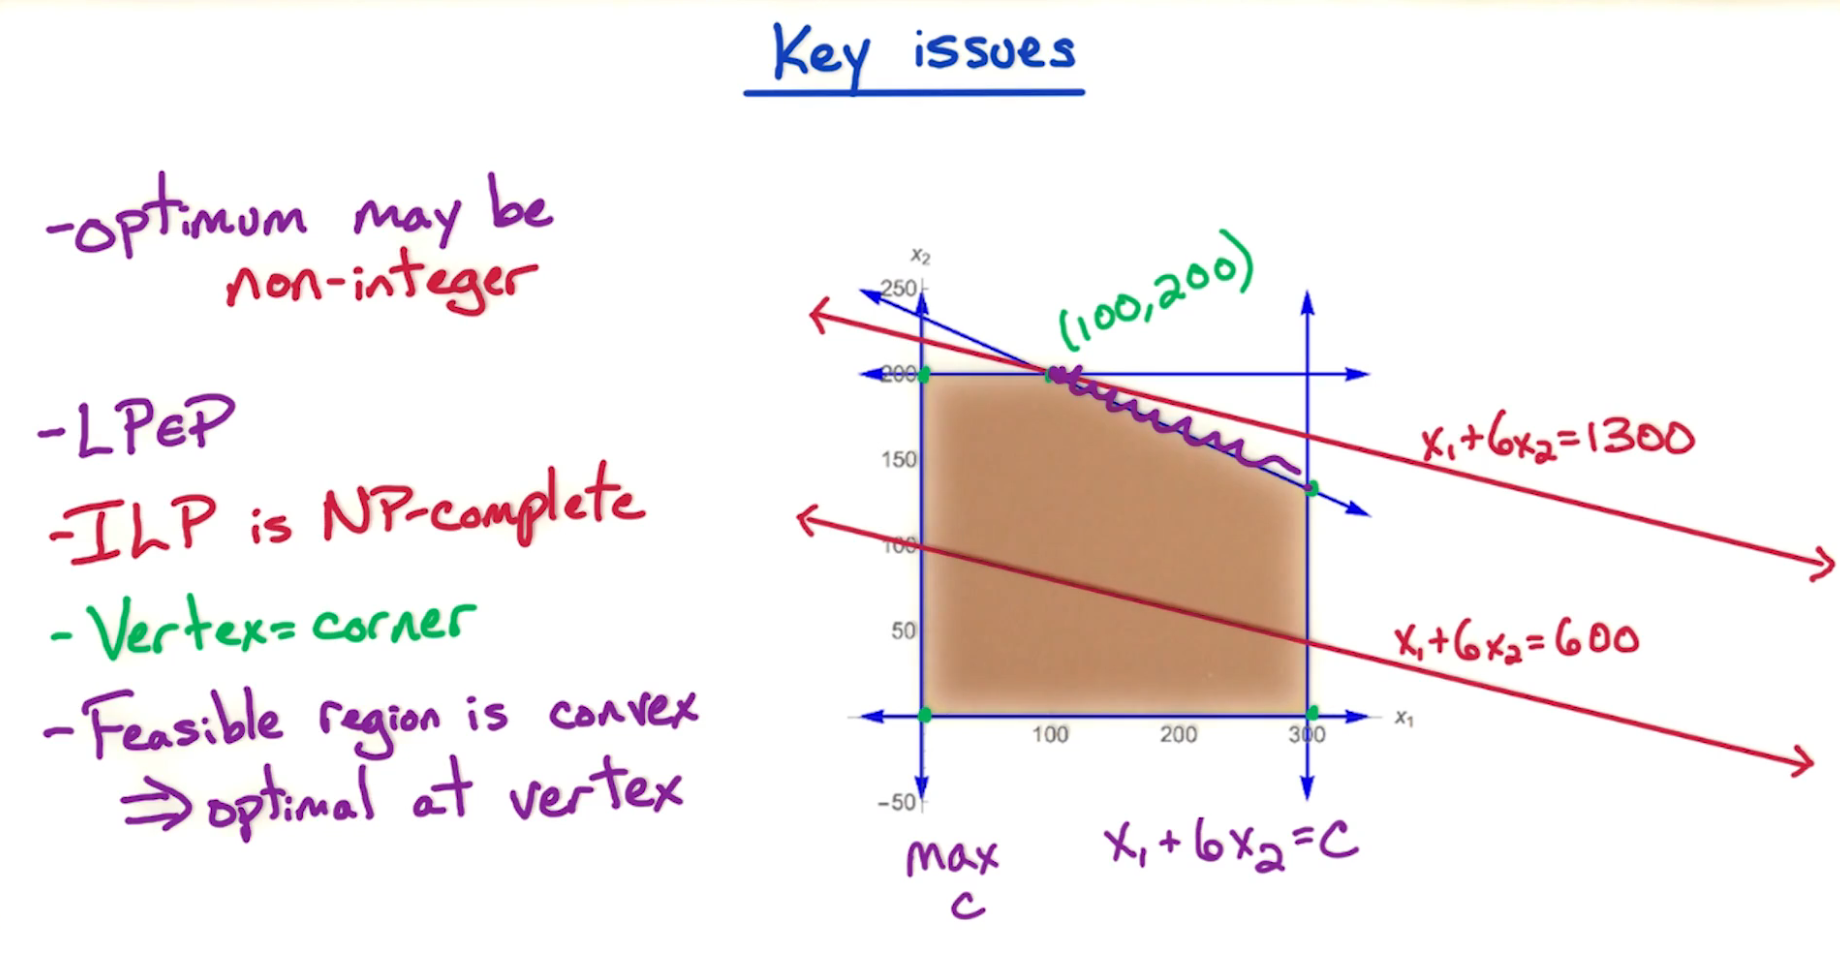 Key issues
-optimum may be
non-integer
-LP∈P
-ILP is NP-complete
- Vertex= corner
- Feasible region is convex
⇒ optimal at vertex
x₂
250
(100,200)
200
150
x₁+6x₂=1300
100
50
x₁+6x₂=600
100 200 300 x₁
-50
max x₁+6x₂=C
c